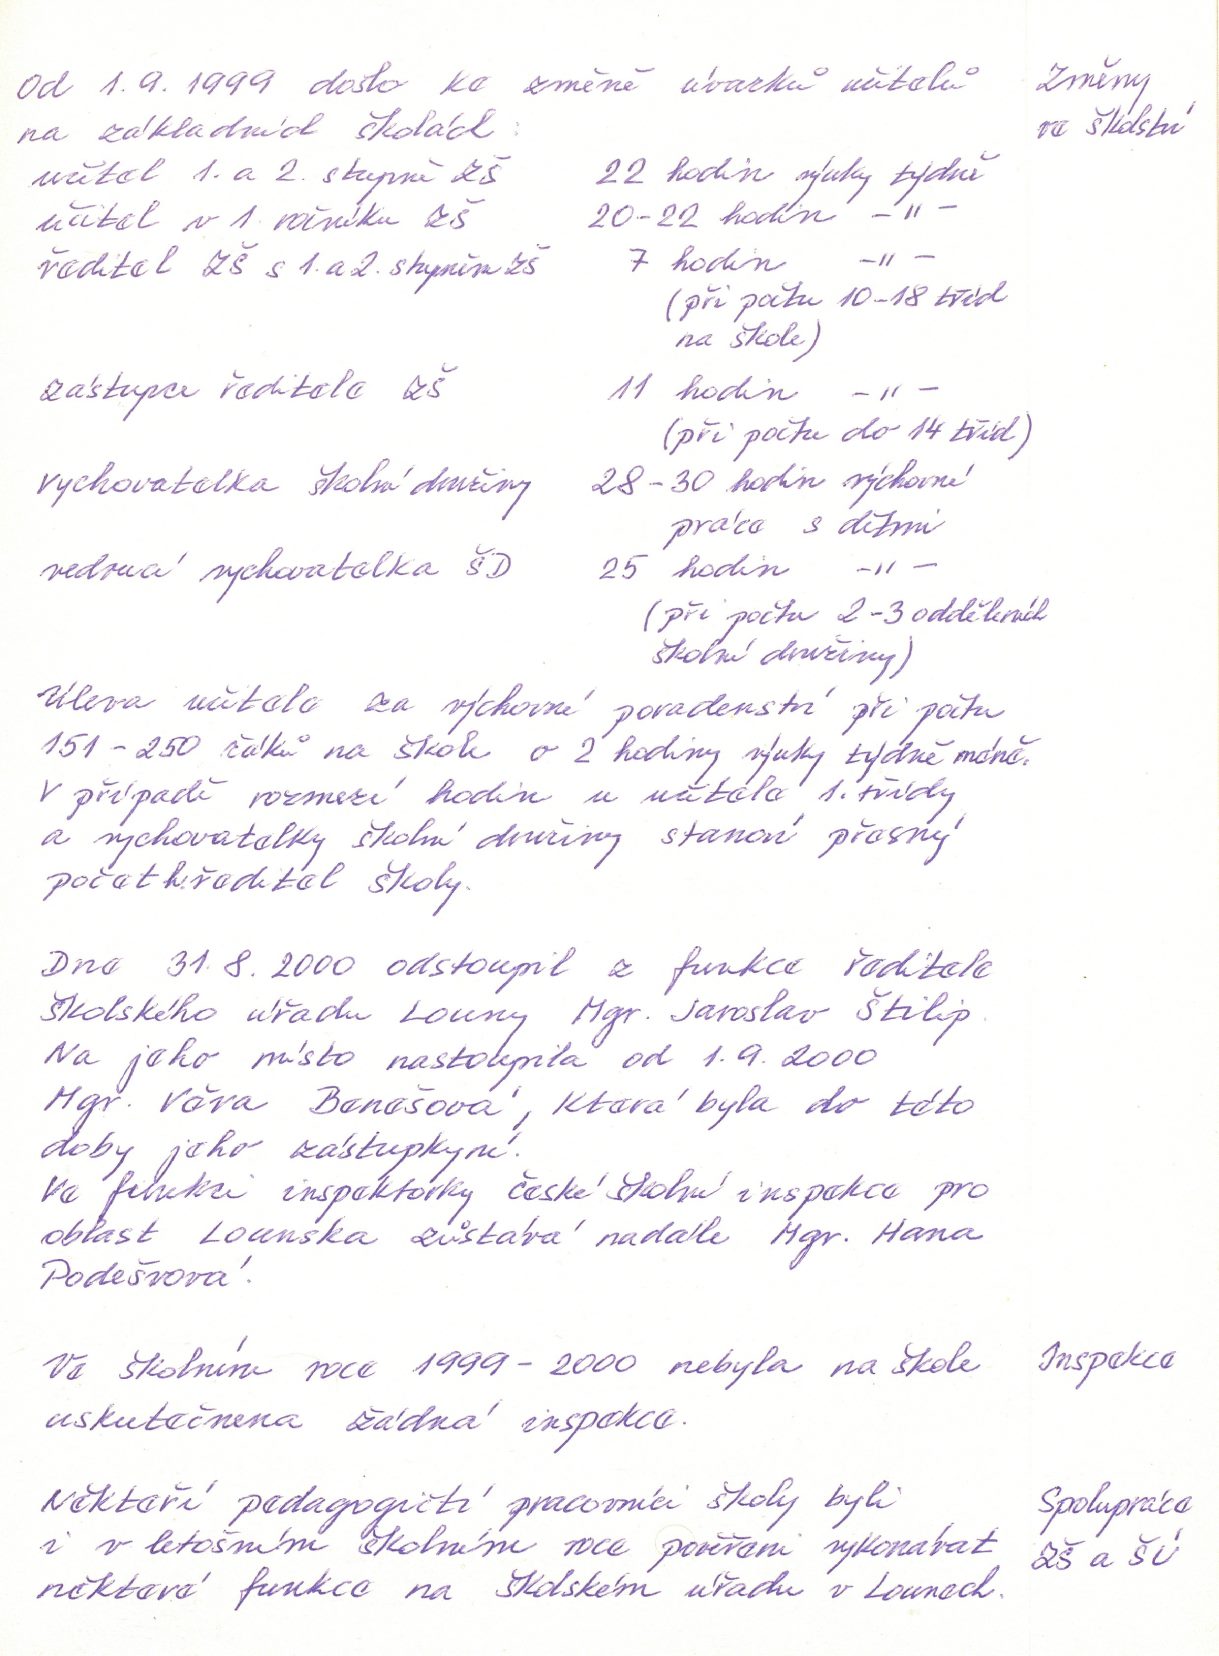 Od 1.9.1999 došlo ke změně úvazků učitelů
Změny
na základních školách:
ve školství
učitel 1. a 2. stupně ZŠ 22 hodin výuky týdně
učitel v 1. ročníku ZŠ 20-22 hodin -"-
ředitel ZŠ s 1. a 2. stupněm ZŠ 7 hodin -"-
(při počtu 10-18 tříd
na škole)
zástupce ředitele ZŠ 11 hodin -"-
(při počtu do 14 tříd)
vychovatelka školní družiny 28-30 hodin výchovné
práce s dětmi
vedoucí vychovatelka ŠD 25 hodin -"-
(při počtu 2-3 odděleních
školní družiny)
Úleva učitele za výchovné poradenství při počtu
151-250 žáků na škole o 2 hodiny výuky týdně méně.
V případě rozmezí hodin u učitele 1. třídy
a vychovatelky školní družiny stanoví přesný
počet h. ředitel školy.
Dne 31.8.2000 odstoupil z funkce ředitele
školského úřadu Louny Mgr. Jaroslav Štilip.
Na jeho místo nastoupila od 1.9.2000
Mgr. Věra Benešová, která byla do této
doby jeho zástupkyní.
Ve funkci inspektorky české školní inspekce pro
oblast Lounska zůstává nadále Mgr. Hana
Podešvová.
Ve školním roce 1999-2000 nebyla na škole
Inspekce
uskutečnena žádná inspekce.
Někteří pedagogičtí pracovníci školy byli
Spolupráce
i v letošním školním roce pověřeni vykonávat
ZŠ a ŠÚ
některé funkce na školském úřadu v Lounech.